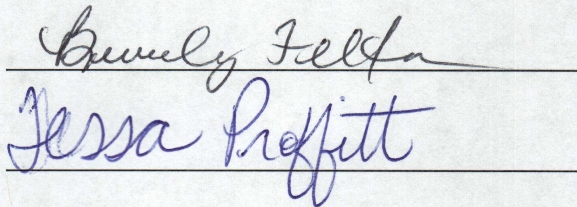 Beverly Felton
Tessa Proffitt